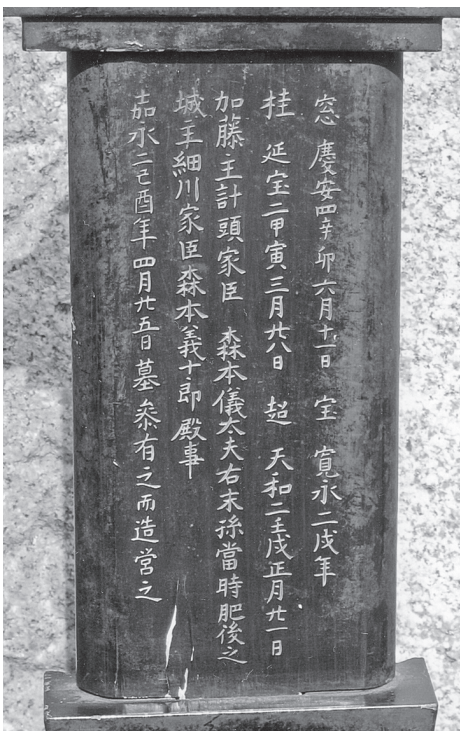 窓 慶安四辛卯六月十一日 宝 寛永二戌年
桂 延宝二甲寅三月廿八日 超 天和二壬戌正月廿一日
加藤主計頭家臣 森本儀太夫右末孫當時肥後之
城主細川家臣森本義十郎殿事
嘉永二己酉年四月廿五日墓参有之而造営之